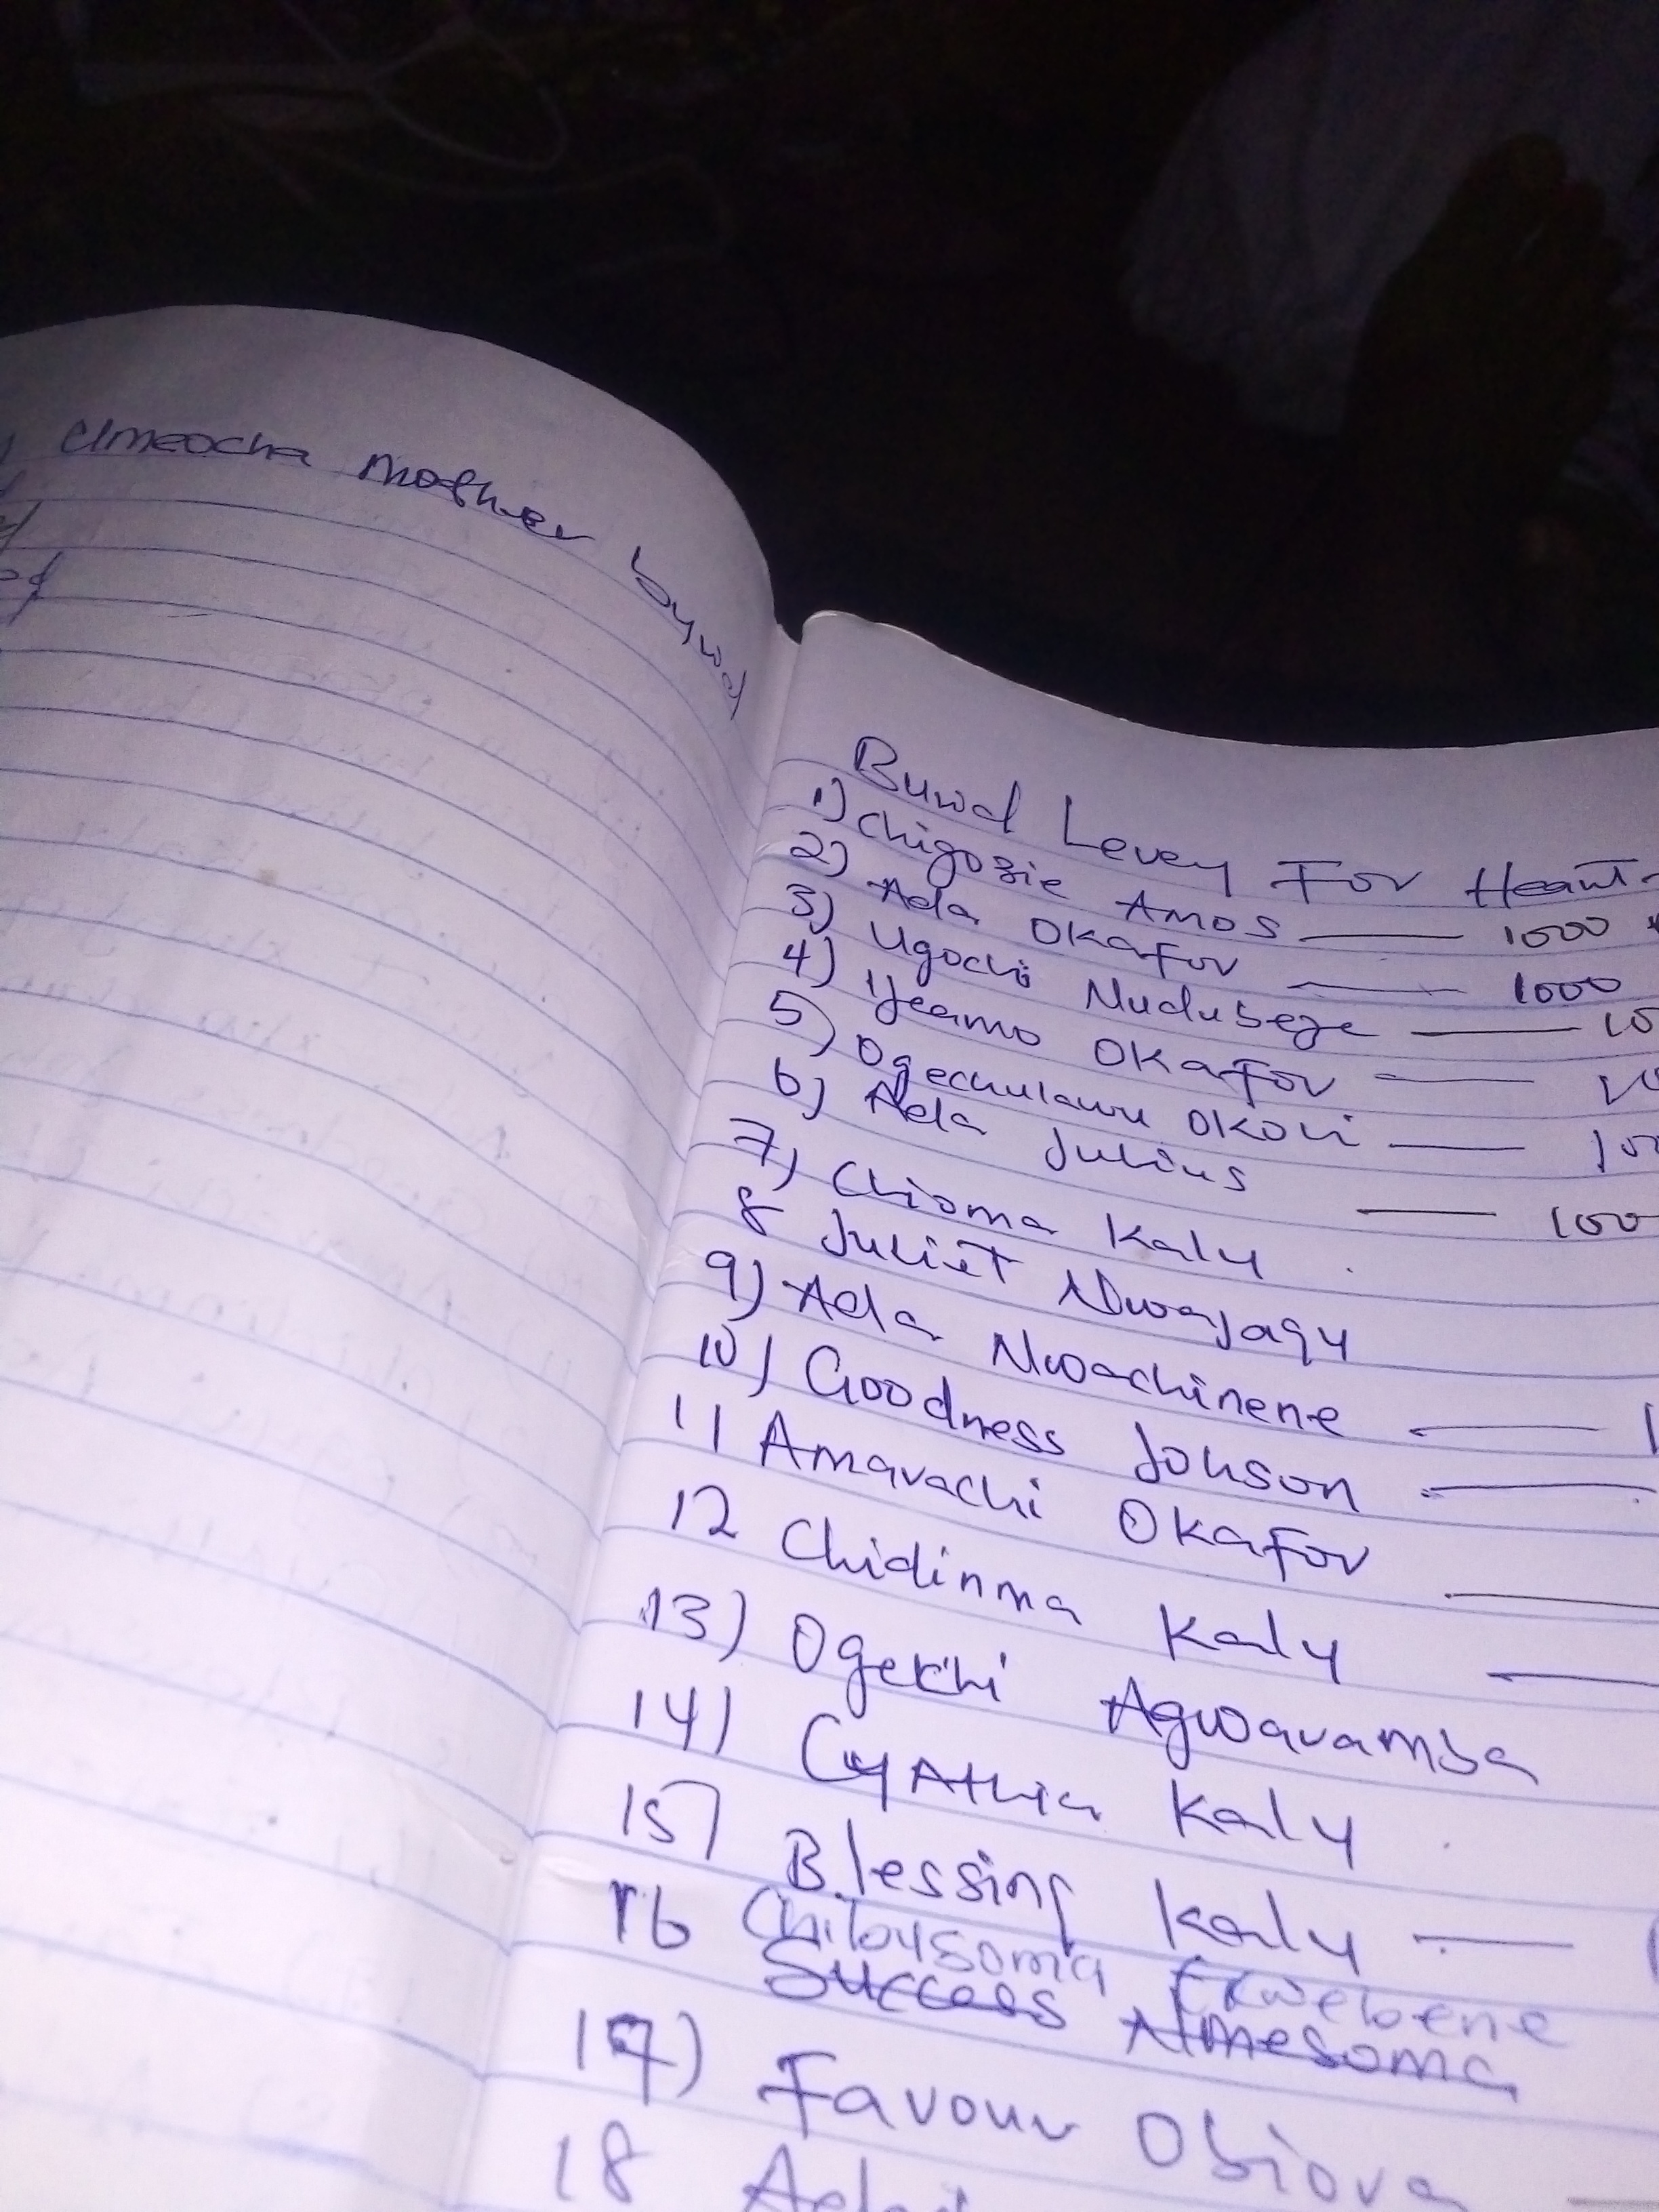 Umeocha Mother byrod
Burod Levey For Heart-
1) Chigozie Amos — 1000
2) Ada Okafor — 1000
3) Ugochi Nwdubeze — 10
4) Ijeamo Okafor — 10
5) Ogechulawu Okori — 100
6) Ada Julius — 100
7) Chioma Kalu
8 Juliet Nwajagu
9) Ada Nwachinene — 1
10) Goodness Johson —
11 Amarachi Okafor —
12 Chidinma Kalu —
13) Ogechi Agwaramba
14) Cynthia Kalu
15) Blessing Kalu —
16 Chibuysoma Ekwebene
Success Nmesoma
17) Favour Obiora
18